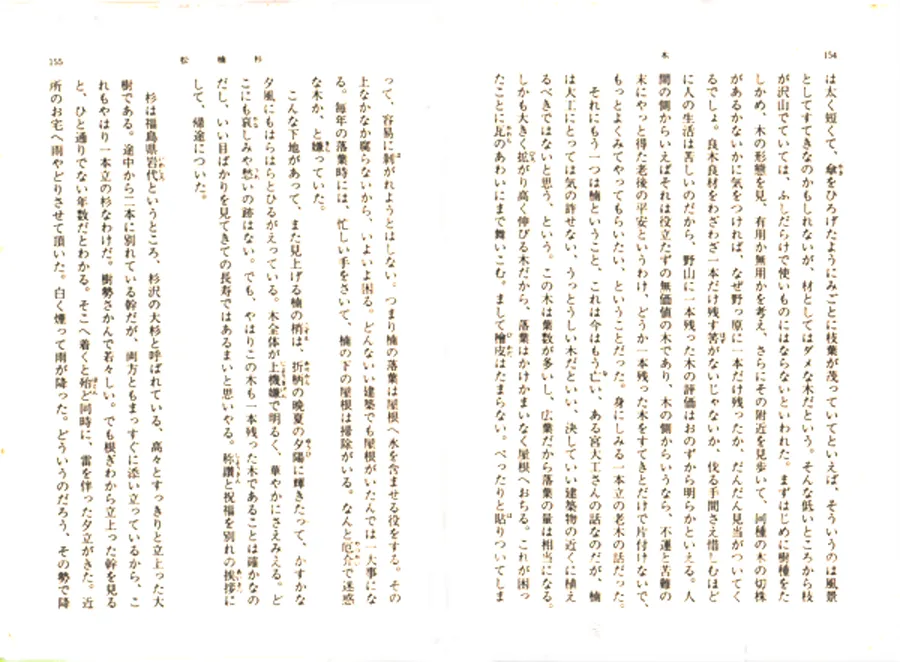 154
木
は太く短くて、傘をひろげたようにみごとに枝葉が茂っていてといえば、そういうのは風景
としてすてきなのかもしれないが、材としてはダメな木だという。そんな低いところから枝
が沢山でていては、ふしだらけで使いものにはならないといわれた。まずはじめに樹種をた
しかめ、木の形態を見、有用か無用かを考え、さらにその附近を見歩いて、同種の木の切株
があるかないかに気をつければ、なぜ野っ原に一本だけ残ったか、だんだん見当がついてく
るでしょ。良木良材をわざわざ一本だけ残す筈がないじゃないか、伐る手間さえ惜しむほど
に人の生活は苦しいのだから、野山に一本残った木の評価はおのずから明らかといえる。人
間の側からいえばそれは役立たずの無価値の木であり、木の側からいうなら、不運と苦難の
末にやっと得た老後の平安というわけ、どうか一本残った木をすてきとだけで片付けないで、
もっとよくみてやってもらいたい、ということだった。身にしみる一本立の老木の話だった。
それにもう一つは楠ということ、これは今はもう亡い、ある宮大工さんの話なのだが、楠
は大工にとっては気の許せない、うっとうしい木だといい、決していい建築物の近くに植え
るべきではないと思う、という。この木は葉数が多いし、広葉だから落葉の量は相当になる。
しかも大きく拡がり高く伸びる木だから、落葉はかけかまいなく屋根へおちる。これが困っ
たことに瓦のあわいにまで舞いこむ。まして檜皮はたまらない。べったりと貼りついてしま
155
杉 楠 松
って、容易に剝がれようとはしない。つまり楠の落葉は屋根へ水を含ませる役をする。その
上なかなか腐らないから、いよいよ困る。どんないい建築でも屋根がいたんでは一大事にな
る。毎年の落葉時には、忙しい手をさいて、楠の下の屋根は掃除がいる。なんと厄介で迷惑
な木か、と嫌っていた。
こんな下地があって、また見上げる楠の梢は、折柄の晩夏の夕陽に輝きたって、かすかな
夕風にもはらはらとひるがえっている。木全体が上機嫌で明るく、華やかにさえみえる。ど
こにも哀しみや愁いの跡はない。でも、やはりこの木も一本残った木であることは確かなの
だし、いい目ばかりを見てきての長寿ではあるまいと思いやる。称讃と祝福を別れの挨拶に
して、帰途についた。
杉は福島県岩代というところ、杉沢の大杉と呼ばれている、高々とすっきりと立上った大
樹である。途中から二本に別れている幹だが、両方ともまっすぐに添い立っているから、こ
れもやはり一本立の杉なわけだ。樹勢さかんで若々しい。でも根ぎわから立上った幹を見る
と、ひと通りでない年数だとわかる。そこへ着くと殆ど同時に、雷を伴った夕立がきた。近
所のお宅へ雨やどりさせて頂いた。白く煙って雨が降った。どういうのだろう、その勢で降